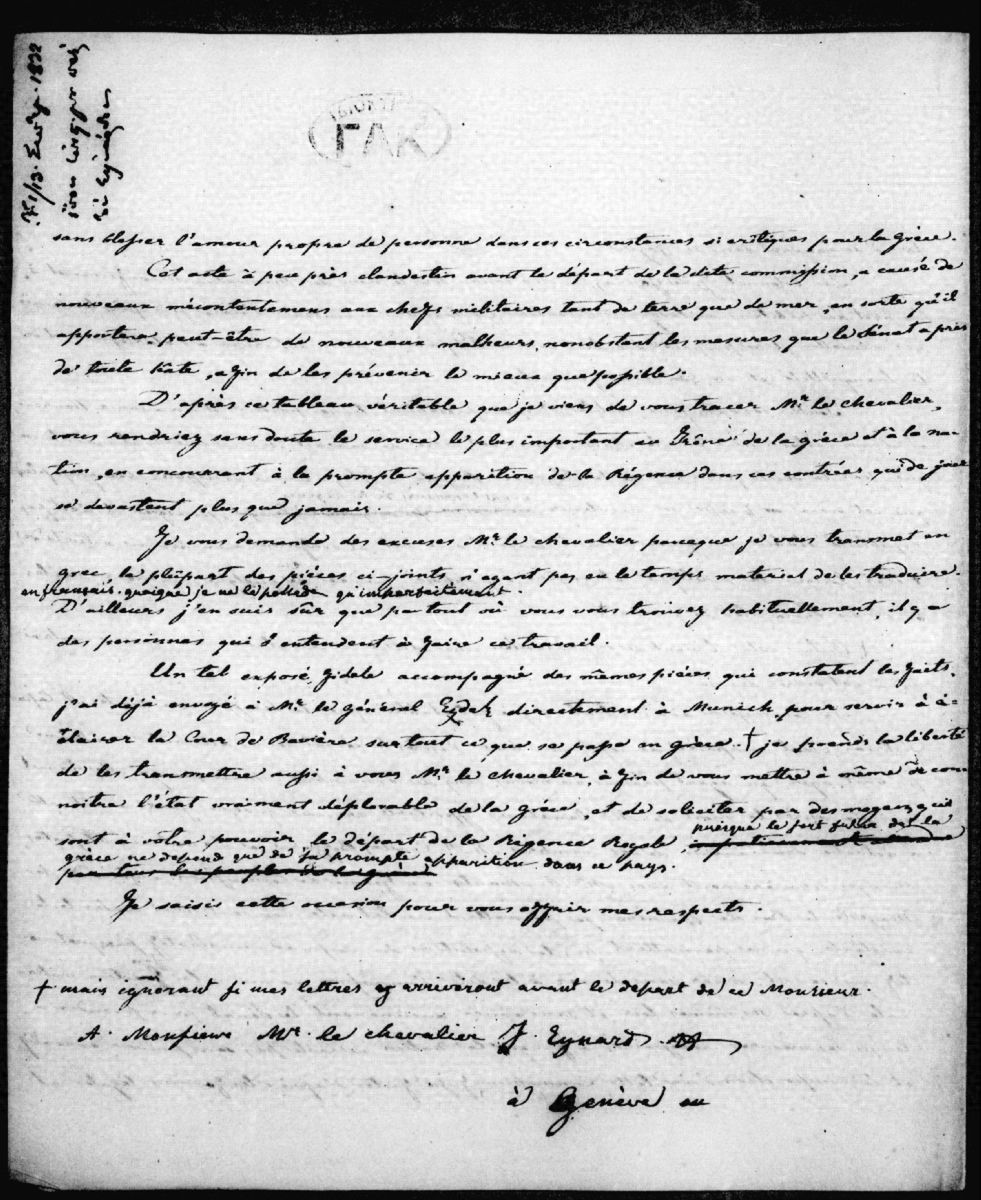 1/13 7βρ. 1832
ΓΑΚ
sans blesser l'amour propre de personne dans ces circonstances si critiques pour la Grèce.
Cet acte à peu près clandestin avant le départ de la dite commission, a causé de
nouveaux mécontentemens aux chefs militaires tant de terre que de mer, en sorte qu'il
apportera peut-être de nouveaux malheurs, nonobstant les mesures que le Sénat a pris
de toute hâte, afin de les prévenir le mieux que possible.
D'après ce tableau véritable que je viens de vous tracer Mr. le chevalier,
vous rendriez sans doute le service le plus important au Trône de la grèce et à la na-
tion, en concourrant à la prompte apparition de la Régence dans ces contrées qui de jour
se devastent plus que jamais.
Je vous demande des excuses Mr. le chevalier parceque je vous transmet en
grec la plûpart des pièces ci-joints, n'ayant pas eu le temps materiel de les traduire
en français, quoique je ne le possède qu'imparfaitement.
D'ailleurs j'en suis sûr que partout où vous vous trouvez habituellement, il y a
des personnes qui s'entendent à faire ce travail.
Un tel exposé fidele accompagné des mêmes pièces qui constatent les faits,
j'ai déjà envoyé à Mr. le général directement à Munich, pour servir à é-
clairer la Cour de Bavière surtout ce que se passe en grèce. † je prends la liberté
de les transmettre aussi à vous Mr. le chevalier, à fin de vous mettre à même de con-
noitre l'état vraiment déplorable de la Grèce, et de soliciter par des moyens qui
sont à vôtre pouvoir le départ de la Régence Royale, puisque le sort futur de la
grèce ne depend que de sa prompte apparition dans ce pays.
Je saisis cette occasion pour vous offrir mes respects.
† mais ignorant si mes lettres y arriveront avant le départ de ce Monsieur.
A. Monsieur Mr. le chevalier J. Eynard
à Genève